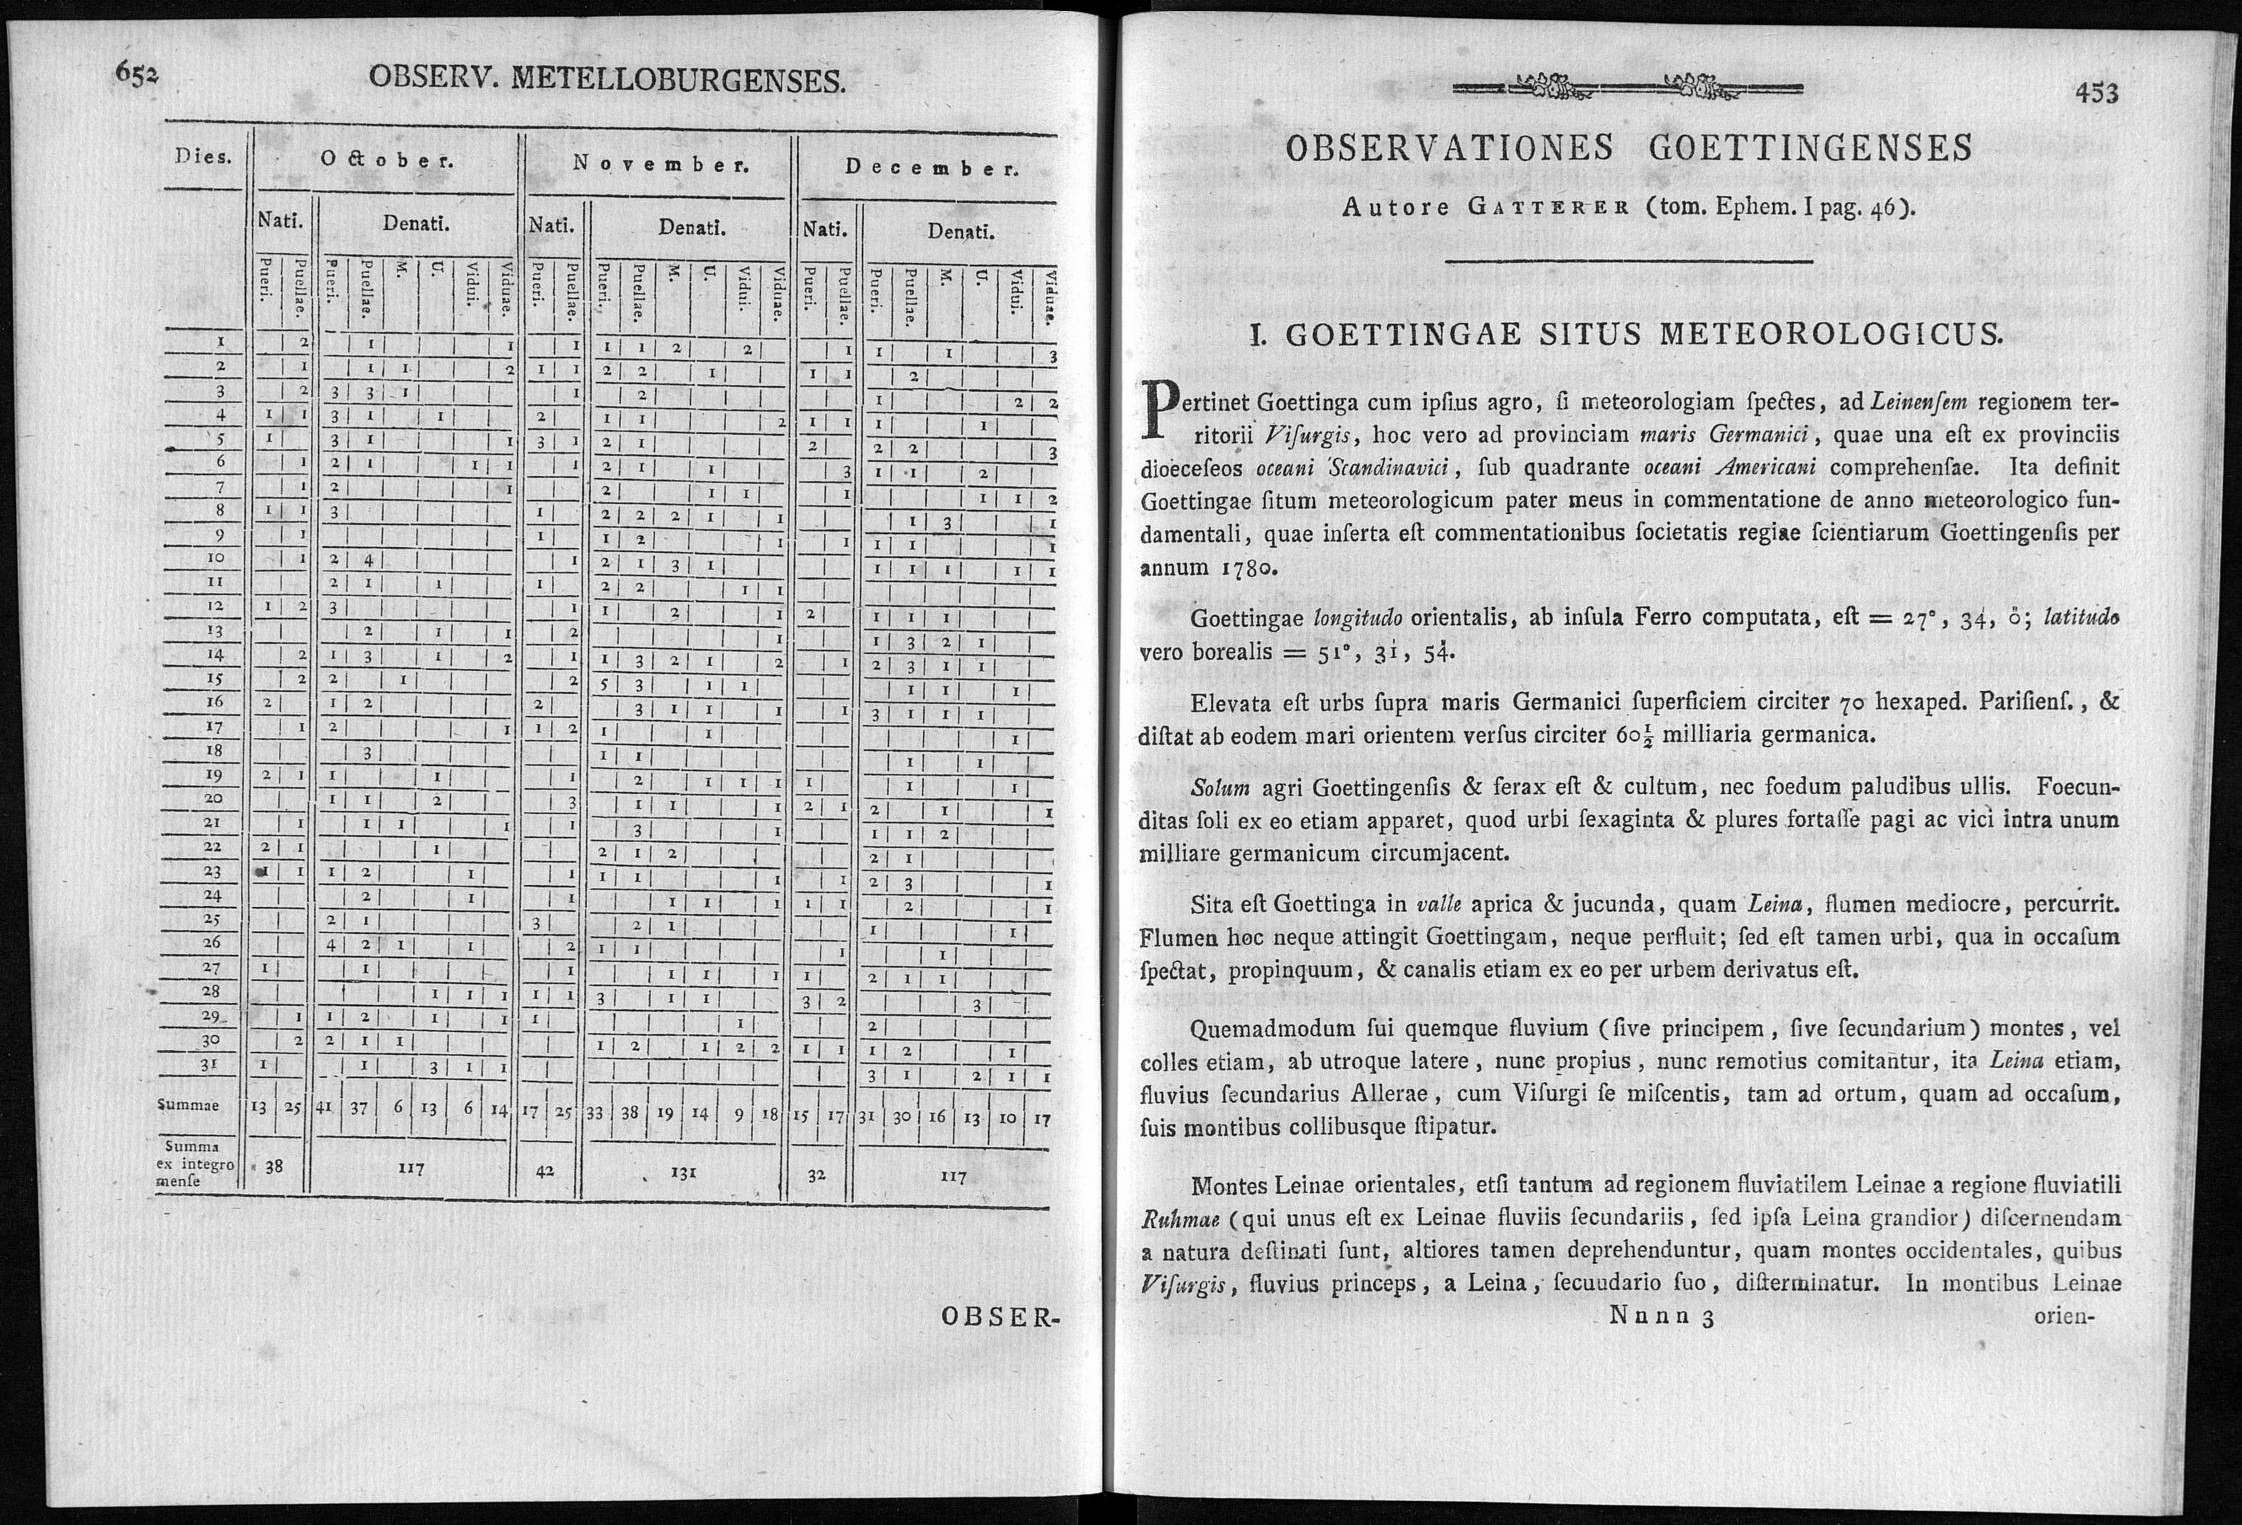 652
OBSERV. METELLOBURGENSES.
Dies. October. November. December.
Nati. Denati. Nati. Denati. Nati. Denati.
Pueri. Puellae. Pueri. Puellae. M. U. Vidui. Viduae. Pueri. Puellae. Pueri. Puellae. M. U. Vidui. Viduae. Pueri. Puellae. Pueri. Puellae. M. U. Vidui. Viduae.
1 2 1 1 1 1 1 2 2 1 1 1 3
2 1 1 1 2 1 1 2 2 1 1 1 2
3 2 3 3 1 1 2 1 2 2
4 1 1 3 1 1 2 1 1 2 1 1 1 1
5 1 3 1 1 3 1 2 1 2 2 2 3
6 1 2 1 1 1 1 2 1 1 3 1 1 2
7 1 2 1 2 1 1 1 1 1 2
8 1 1 3 1 2 2 2 1 1 1 3 1
9 1 1 1 2 1 1 1 1 1
10 1 2 4 1 2 1 3 1 1 1 1 1 1
11 2 1 1 1 2 2 1 1
12 1 2 3 1 1 2 1 2 1 1 1
13 2 1 1 2 1 1 3 2 1
14 2 1 3 1 2 1 1 3 2 1 2 1 2 3 1 1
15 2 2 1 2 5 3 1 1 1 1 1
16 2 1 2 2 3 1 1 1 1 3 1 1 1
17 1 2 1 1 2 1 1 1
18 3 1 1 1 1
19 2 1 1 1 1 2 1 1 1 1 1 1
20 1 1 2 3 1 1 1 2 1 2 1 1
21 1 1 1 1 1 3 1 1 1 2
22 2 1 1 2 1 2 2 1
23 1 1 1 2 1 1 1 1 1 1 2 3 1
24 2 1 1 1 1 1 1 1 2 1
25 2 1 3 2 1 1 1
26 4 2 1 1 2 1 1 1 1
27 1 1 1 1 1 1 1 2 1 1
28 1 1 1 1 1 3 1 1 3 2 3
29 1 1 2 1 1 1 1 2
30 2 2 1 1 1 2 1 2 2 1 1 1 2 1
31 1 1 3 1 1 3 1 2 1 1
Summae 13 25 41 37 6 13 6 14 17 25 33 38 19 14 9 18 15 17 31 30 16 13 10 17
Summa
ex integro 38 117 42 131 32 117
menſe
OBSER-
453
OBSERVATIONES GOETTINGENSES
Autore GATTERER (tom. Ephem. I pag. 46).
I. GOETTINGAE SITUS METEOROLOGICUS.
Pertinet Goettinga cum ipſius agro, ſi meteorologiam ſpectes, ad Leinenſem regionem ter-
ritorii Viſurgis, hoc vero ad provinciam maris Germanici, quae una eſt ex provinciis
dioeceſeos oceani Scandinavici, ſub quadrante oceani Americani comprehenſae. Ita definit
Goettingae ſitum meteorologicum pater meus in commentatione de anno meteorologico fun-
damentali, quae inſerta eſt commentationibus ſocietatis regiae ſcientiarum Goettingenſis per
annum 1780.
Goettingae longitudo orientalis, ab inſula Ferro computata, eſt = 27°, 34́, 0̎; latitudo
vero borealis = 51°, 31́, 54̎.
Elevata eſt urbs ſupra maris Germanici ſuperficiem circiter 70 hexaped. Pariſienſ., &
diſtat ab eodem mari orientem verſus circiter 60½ milliaria germanica.
Solum agri Goettingenſis & ferax eſt & cultum, nec foedum paludibus ullis. Foecun-
ditas ſoli ex eo etiam apparet, quod urbi ſexaginta & plures fortaſſe pagi ac vici intra unum
milliare germanicum circumjacent.
Sita eſt Goettinga in valle aprica & jucunda, quam Leina, flumen mediocre, percurrit.
Flumen hoc neque attingit Goettingam, neque perfluit; ſed eſt tamen urbi, qua in occaſum
ſpectat, propinquum, & canalis etiam ex eo per urbem derivatus eſt.
Quemadmodum ſui quemque fluvium (ſive principem, ſive ſecundarium) montes, vel
colles etiam, ab utroque latere, nunc propius, nunc remotius comitantur, ita Leina etiam,
fluvius ſecundarius Allerae, cum Viſurgi ſe miſcentis, tam ad ortum, quam ad occaſum,
ſuis montibus collibusque ſtipatur.
Montes Leinae orientales, etſi tantum ad regionem fluviatilem Leinae a regione fluviatili
Ruhmae (qui unus eſt ex Leinae fluviis ſecundariis, ſed ipſa Leina grandior) diſcernendam
a natura deſtinati ſunt, altiores tamen deprehenduntur, quam montes occidentales, quibus
Viſurgis, fluvius princeps, a Leina, ſecuudario ſuo, diſterminatur. In montibus Leinae
Nnnn 3
orien-